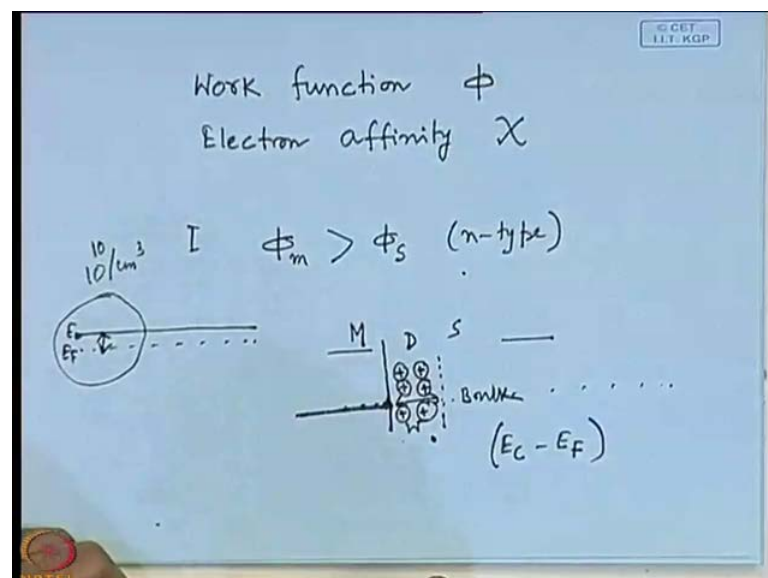 © CET
I.I.T. KGP
Work function ϕ
Electron affinity χ
10
10/cm³ I ϕm > ϕs (n-type)
E
EF
M D S
+ +
+ +
+ +
(EC - EF)